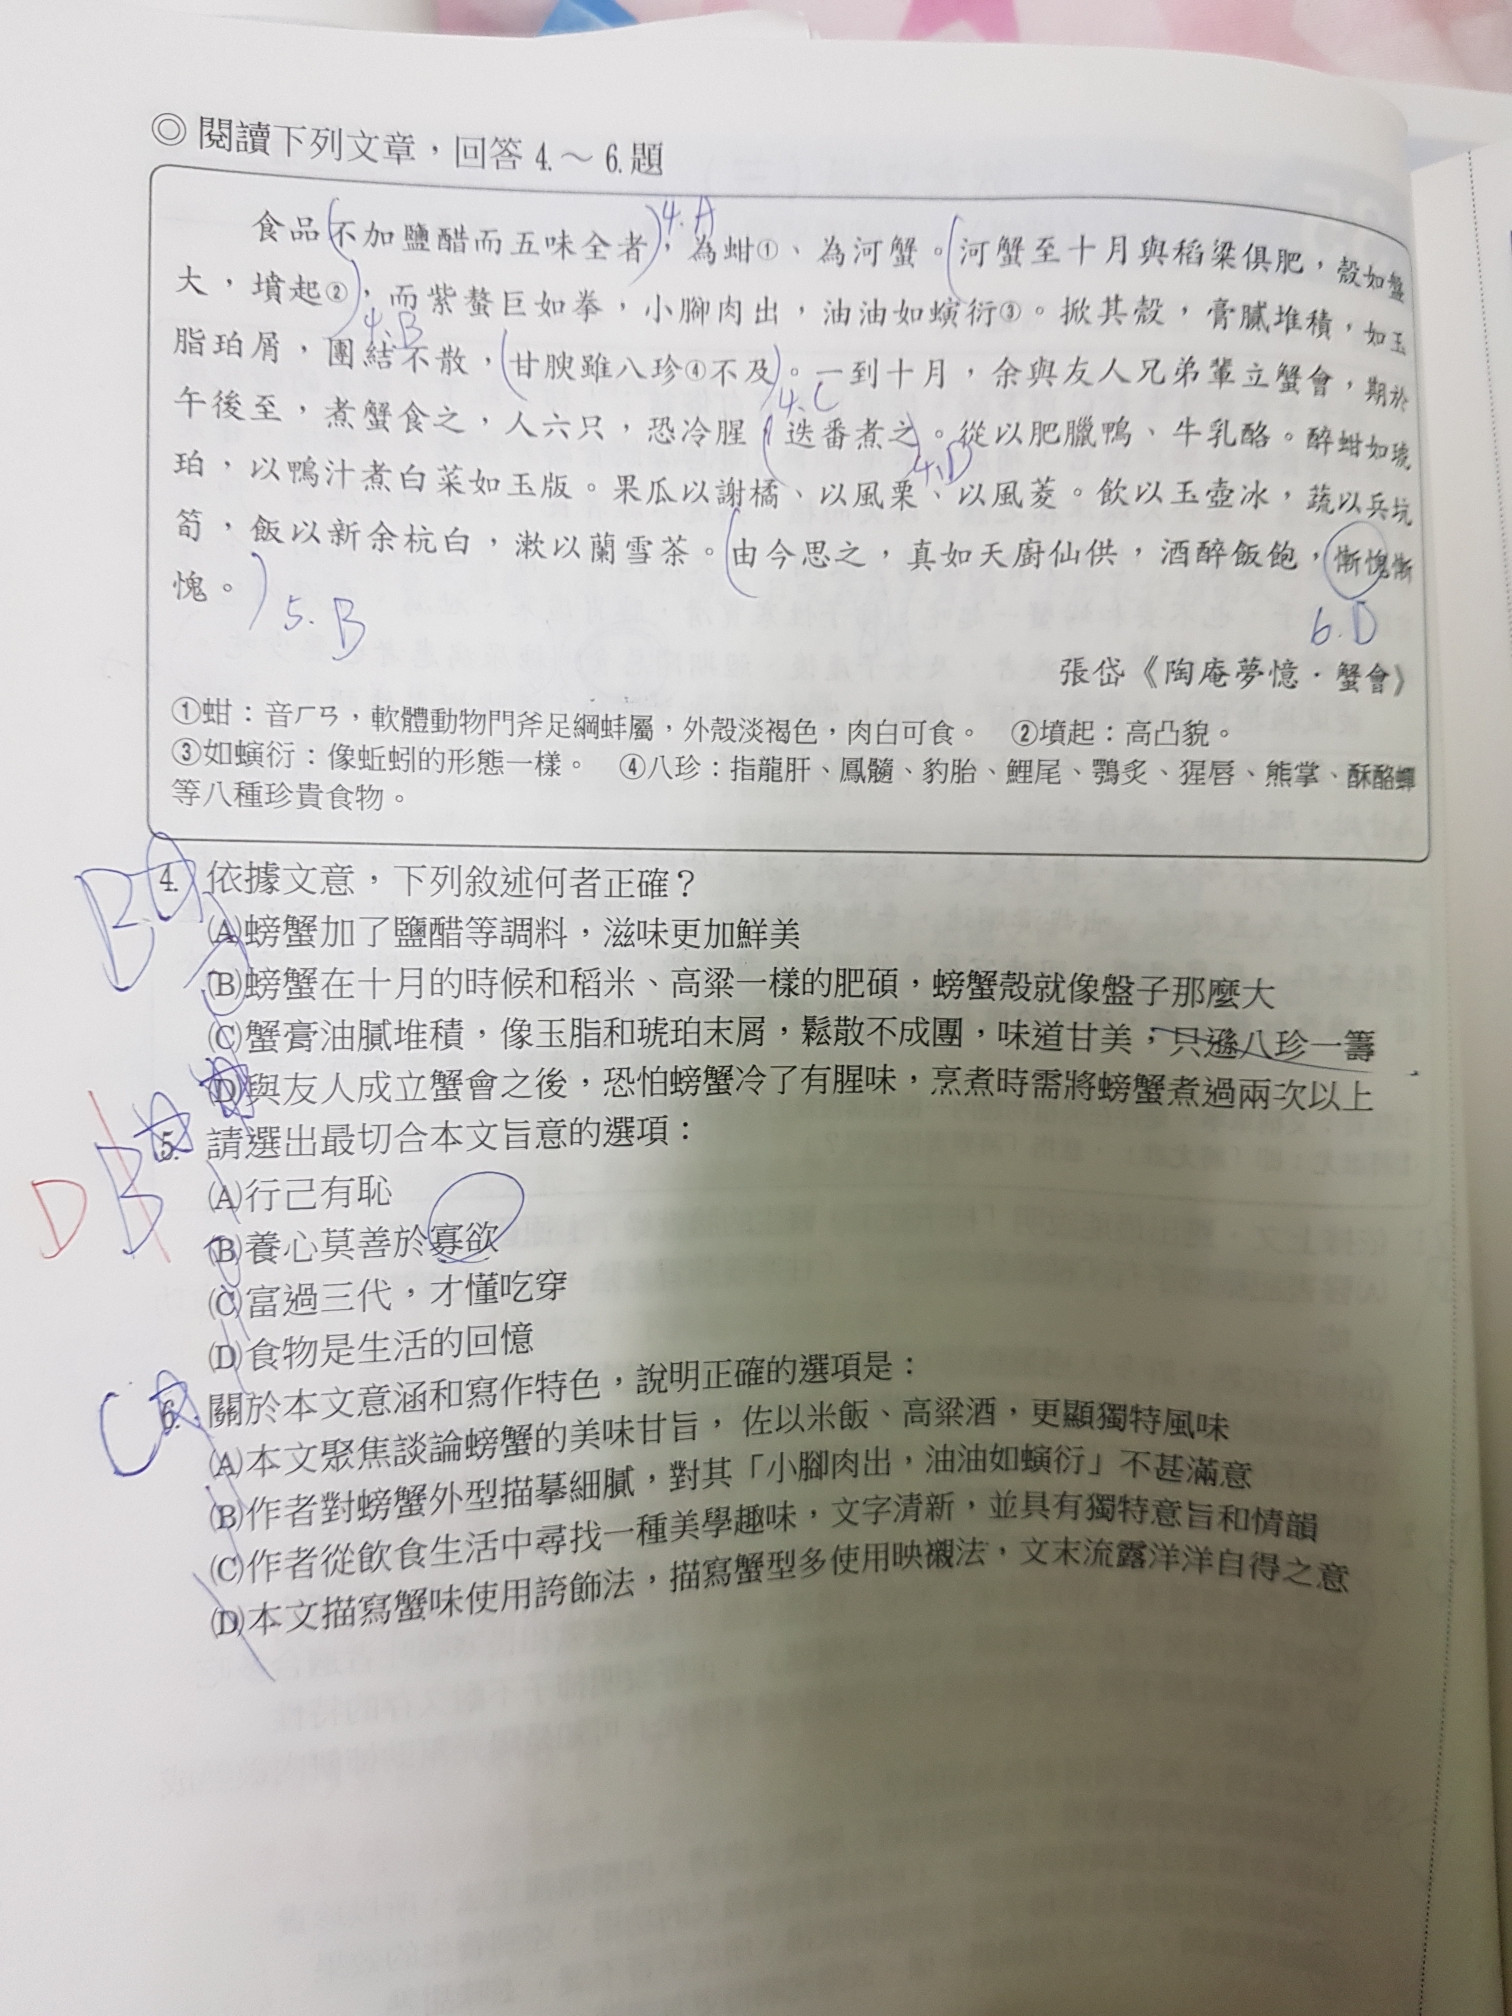 ◎閱讀下列文章，回答4.～6.題
食品不加鹽醋而五味全者，為蚶①、為河蟹。河蟹至十月與稻粱俱肥，殼如盤
4.A
大，墳起②，而紫螯巨如拳，小腳肉出，油油如螾衍③。掀其殼，膏膩堆積，如玉
4.B
脂珀屑，團結不散，甘腴雖八珍④不及。一到十月，余與友人兄弟輩立蟹會，期於
4.C
午後至，煮蟹食之，人六只，恐冷腥，迭番煮之。從以肥臘鴨、牛乳酪。醉蚶如琥
4.D
珀，以鴨汁煮白菜如玉版。果瓜以謝橘、以風栗、以風菱。飲以玉壺冰，蔬以兵坑
筍，飯以新余杭白，漱以蘭雪茶。由今思之，真如天廚仙供，酒醉飯飽，慚愧慚
愧。
5.B
6.D
張岱《陶庵夢憶．蟹會》
①蚶：音ㄏㄢ，軟體動物門斧足綱蚌屬，外殼淡褐色，肉白可食。 ②墳起：高凸貌。
③如螾衍：像蚯蚓的形態一樣。 ④八珍：指龍肝、鳳髓、豹胎、鯉尾、鴞炙、猩唇、熊掌、酥酪蟬
等八種珍貴食物。
B 4. 依據文意，下列敘述何者正確？
(A)螃蟹加了鹽醋等調料，滋味更加鮮美
(B)螃蟹在十月的時候和稻米、高粱一樣的肥碩，螃蟹殼就像盤子那麼大
(C)蟹膏油膩堆積，像玉脂和琥珀末屑，鬆散不成團，味道甘美，只遜八珍一籌
(D)與友人成立蟹會之後，恐怕螃蟹冷了有腥味，烹煮時需將螃蟹煮過兩次以上
D B 5. 請選出最切合本文旨意的選項：
(A)行己有恥
(B)養心莫善於寡欲
(C)富過三代，才懂吃穿
(D)食物是生活的回憶
C 6. 關於本文意涵和寫作特色，說明正確的選項是：
(A)本文聚焦談論螃蟹的美味甘旨，佐以米飯、高粱酒，更顯獨特風味
(B)作者對螃蟹外型描摹細膩，對其「小腳肉出，油油如螾衍」不甚滿意
(C)作者從飲食生活中尋找一種美學趣味，文字清新，並具有獨特意旨和情韻
(D)本文描寫蟹味使用誇飾法，描寫蟹型多使用映襯法，文末流露洋洋自得之意